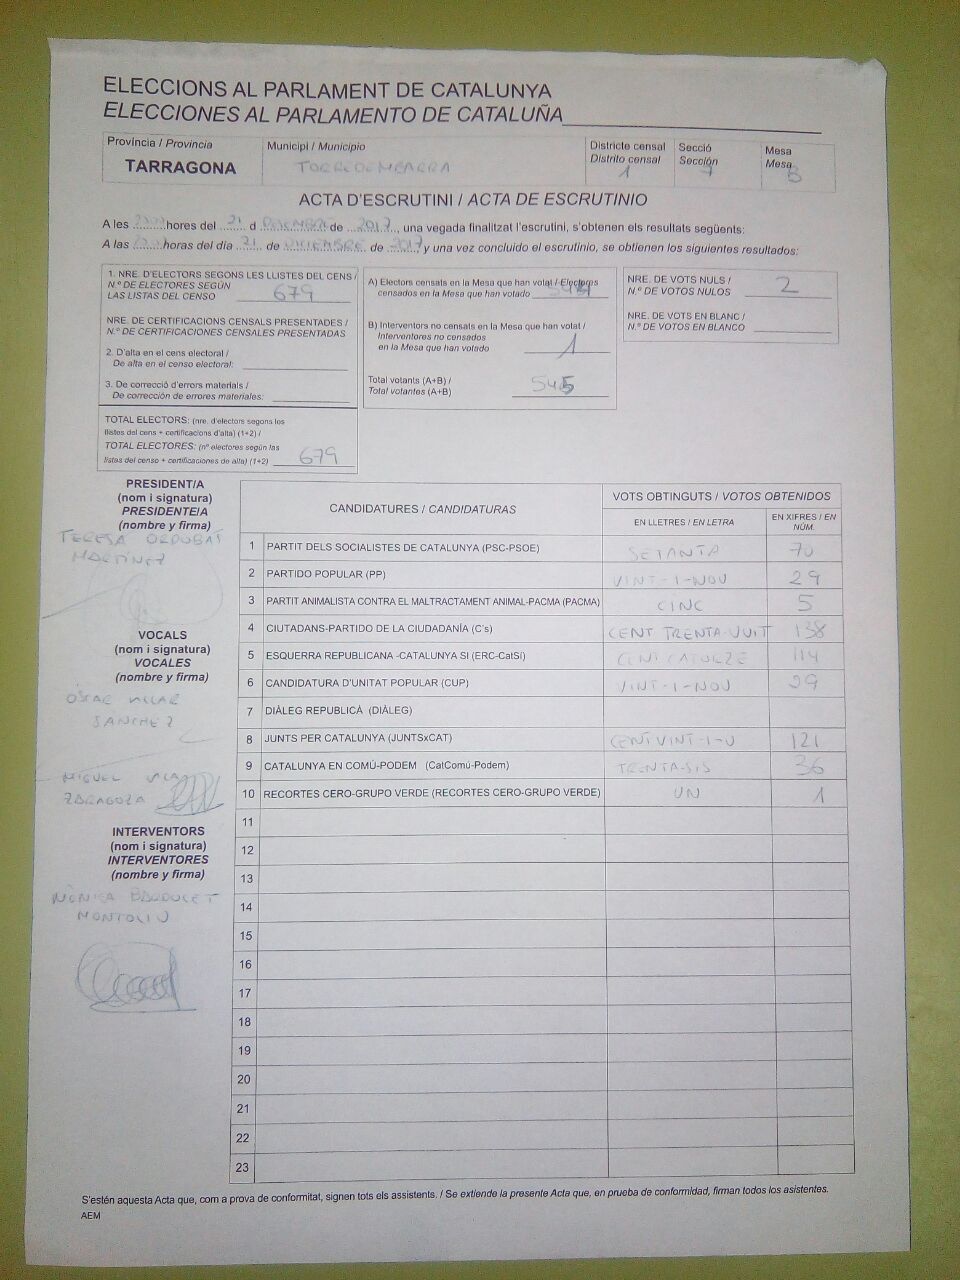 ELECCIONS AL PARLAMENT DE CATALUNYA
ELECCIONES AL PARLAMENTO DE CATALUÑA
Província / Provincia
TARRAGONA
Municipi / Municipio
TORREDEMBARRA
Districte censal
Distrito censal
1
Secció
Sección
7
Mesa
Mesa
B
ACTA D'ESCRUTINI / ACTA DE ESCRUTINIO
A les hores del 21 d DESEMBRE de 2017, una vegada finalitzat l'escrutini, s'obtenen els resultats següents:
A las horas del día 21 de DICIEMBRE de 2017 y una vez concluido el escrutinio, se obtienen los siguientes resultados:
1. NRE. D'ELECTORS SEGONS LES LLISTES DEL CENS /
N.º DE ELECTORES SEGÚN
LAS LISTAS DEL CENSO 679
NRE. DE CERTIFICACIONS CENSALS PRESENTADES /
N.º DE CERTIFICACIONES CENSALES PRESENTADAS
2. D'alta en el cens electoral /
De alta en el censo electoral:
3. De correcció d'errors materials /
De corrección de errores materiales:
TOTAL ELECTORS: (nre. d'electors segons les
llistes del cens + certificacions d'alta) (1+2) /
TOTAL ELECTORES: (nº electores según las
listas del censo + certificaciones de alta) (1+2) 679
A) Electors censats en la Mesa que han votat / Electores
censados en la Mesa que han votado 544
B) Interventors no censats en la Mesa que han votat /
Interventores no censados
en la Mesa que han votado 1
Total votants (A+B) /
Total votantes (A+B) 545
NRE. DE VOTS NULS /
N.º DE VOTOS NULOS 2
NRE. DE VOTS EN BLANC /
N.º DE VOTOS EN BLANCO
PRESIDENT/A
(nom i signatura)
PRESIDENTE/A
(nombre y firma)
TERESA ORDUBAS
MARTÍNEZ
VOCALS
(nom i signatura)
VOCALES
(nombre y firma)
ÓSCAR VILLAR
SANCHEZ
MIGUEL VILA
ZARAGOZA
INTERVENTORS
(nom i signatura)
INTERVENTORES
(nombre y firma)
MÒNICA
MONTOLIU
CANDIDATURES / CANDIDATURAS
VOTS OBTINGUTS / VOTOS OBTENIDOS
EN LLETRES / EN LETRA
EN XIFRES / EN NÚM.
1 PARTIT DELS SOCIALISTES DE CATALUNYA (PSC-PSOE) SETANTA 70
2 PARTIDO POPULAR (PP) VINT-I-NOU 29
3 PARTIT ANIMALISTA CONTRA EL MALTRACTAMENT ANIMAL-PACMA (PACMA) CINC 5
4 CIUTADANS-PARTIDO DE LA CIUDADANÍA (C's) CENT TRENTA-VUIT 138
5 ESQUERRA REPUBLICANA -CATALUNYA SÍ (ERC-CatSí) CENT CATORZE 114
6 CANDIDATURA D'UNITAT POPULAR (CUP) VINT-I-NOU 29
7 DIÀLEG REPUBLICÀ (DIÀLEG)
8 JUNTS PER CATALUNYA (JUNTSxCAT) CENT VINT-I-U 121
9 CATALUNYA EN COMÚ-PODEM (CatComú-Podem) TRENTA-SIS 36
10 RECORTES CERO-GRUPO VERDE (RECORTES CERO-GRUPO VERDE) UN 1
11
12
13
14
15
16
17
18
19
20
21
22
23
S'estén aquesta Acta que, com a prova de conformitat, signen tots els assistents. / Se extiende la presente Acta que, en prueba de conformidad, firman todos los asistentes.
AEM